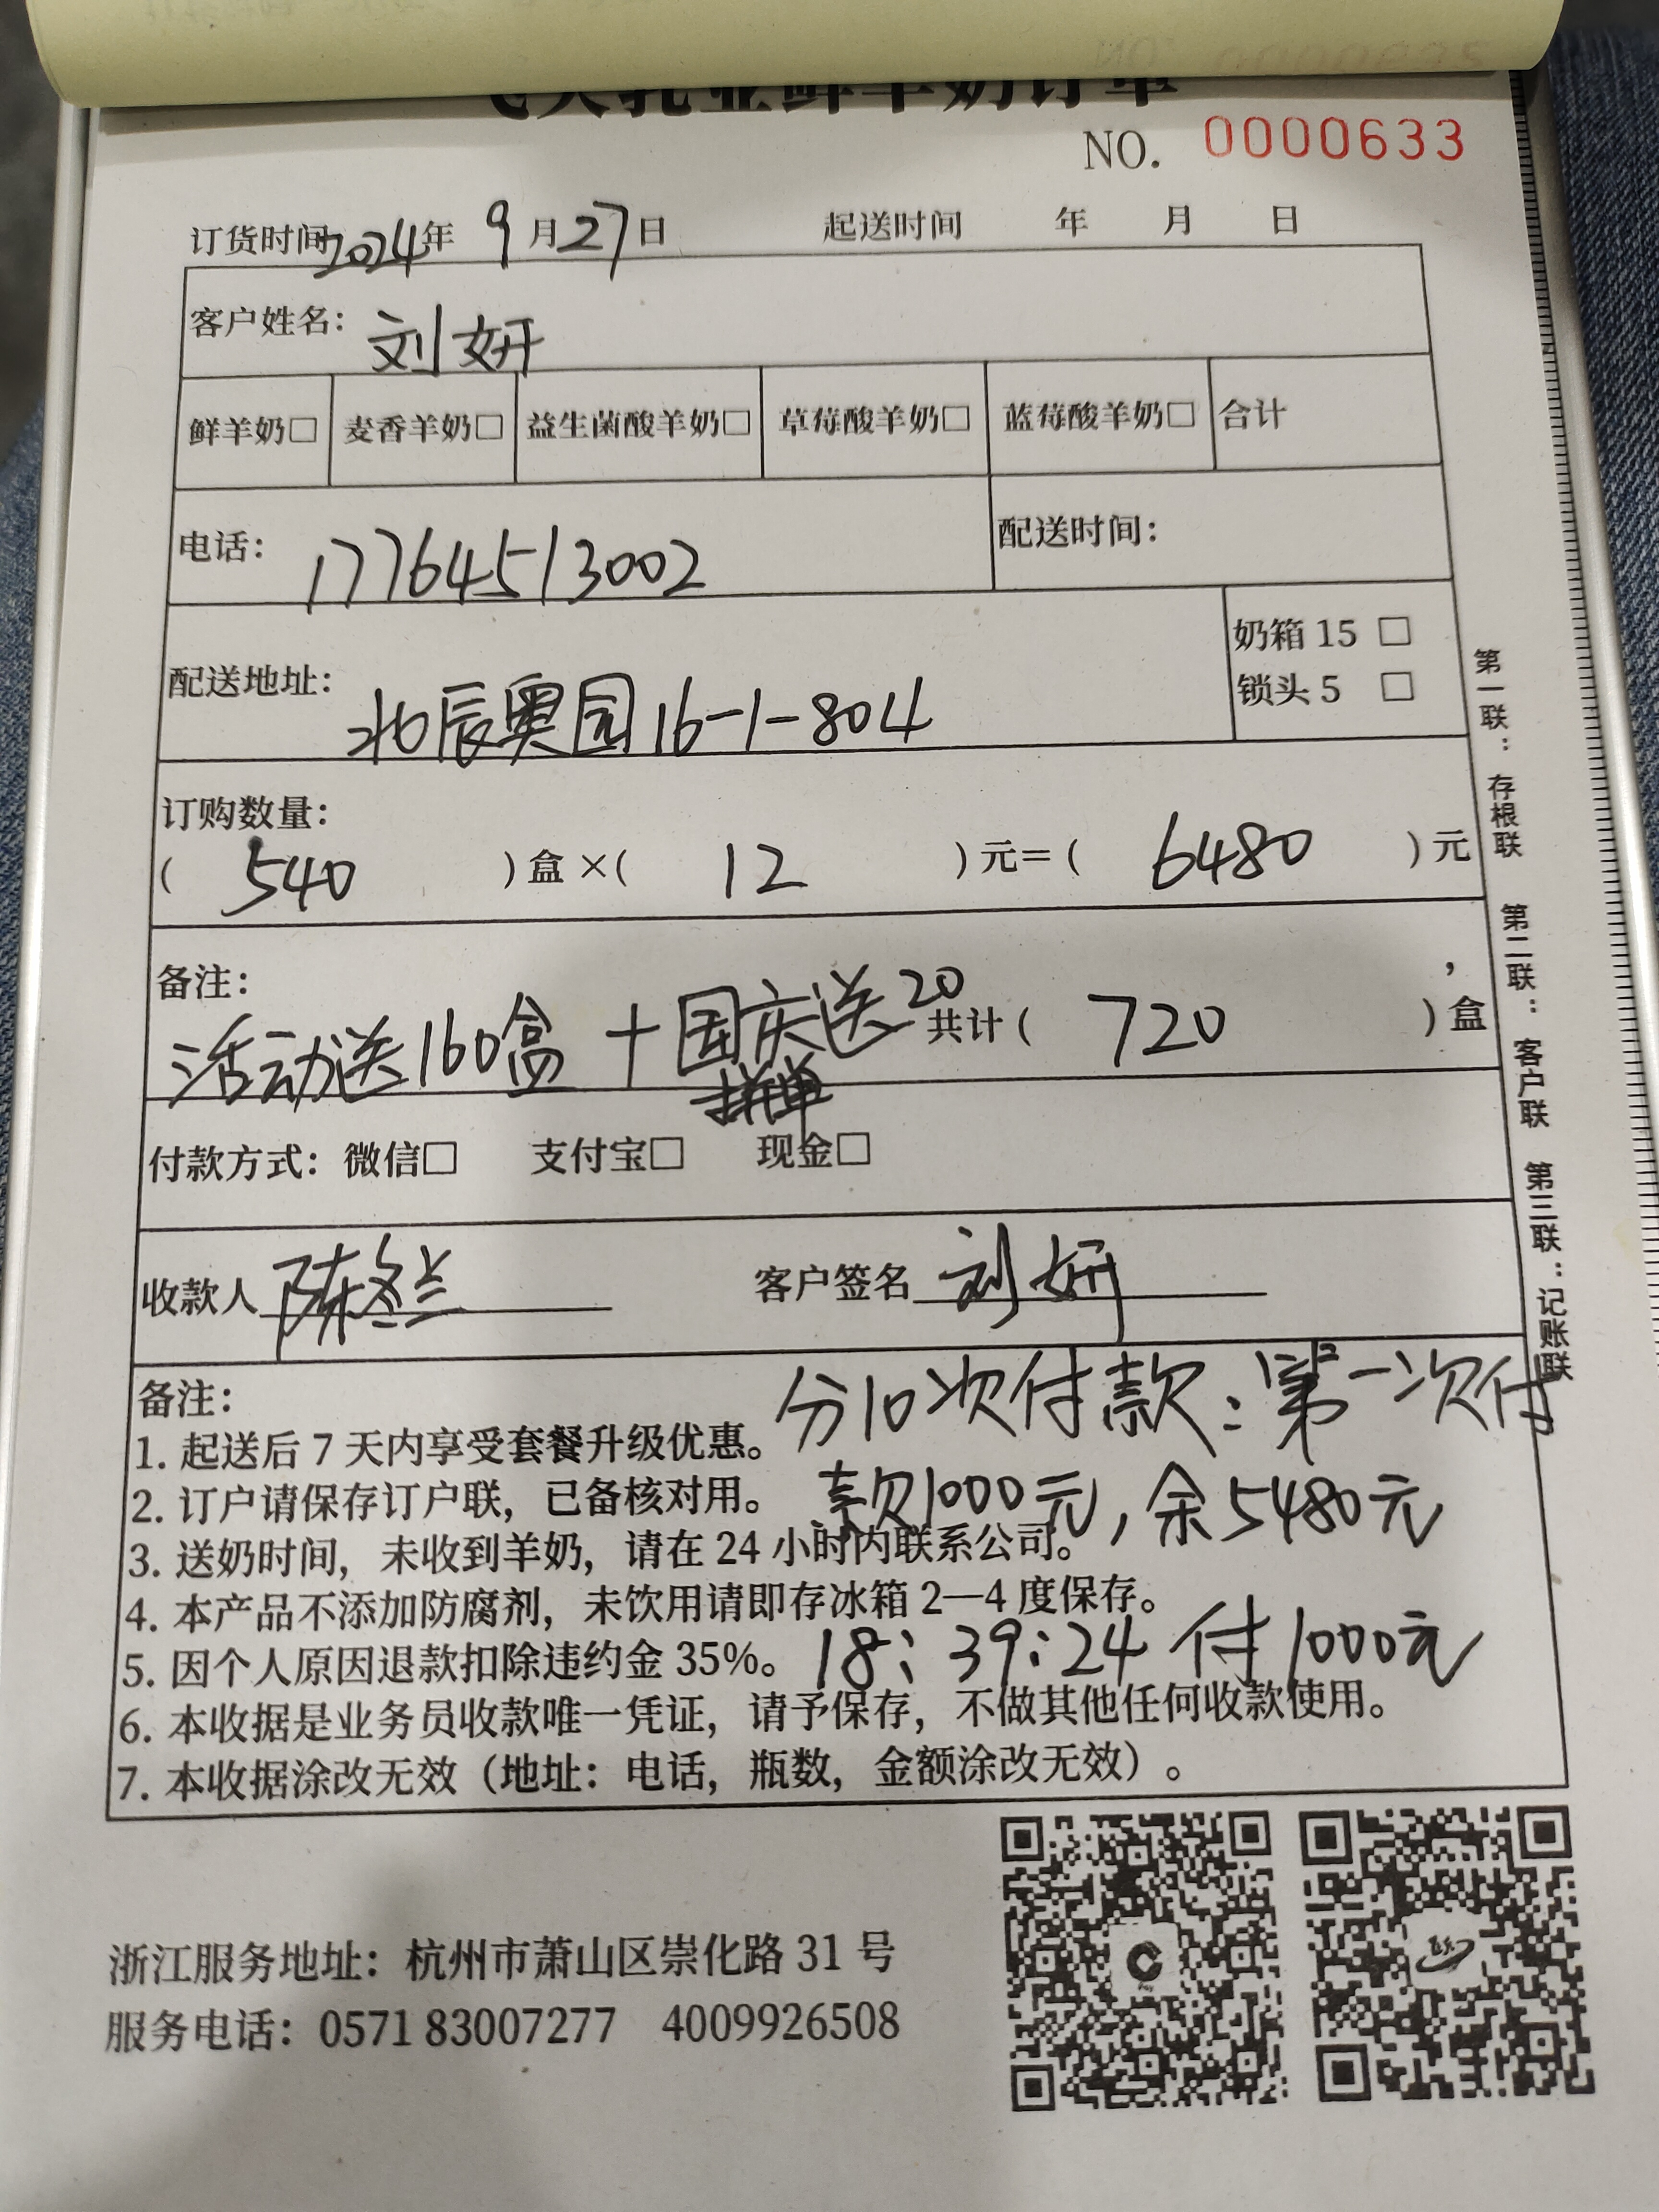 飞天乳业鲜羊奶订单
NO. 0000633
订货时间 2024年 9月27日 起送时间 年 月 日
客户姓名： 刘妍
鲜羊奶□ 麦香羊奶□ 益生菌酸羊奶□ 草莓酸羊奶□ 蓝莓酸羊奶□ 合计
电话： 17764513002 配送时间：
配送地址： 北辰奥园16-1-804
奶箱 15 □
锁头 5 □
订购数量：
( 540 ) 盒 ×( 12 ) 元＝( 6480 ) 元
备注： ，
活动送160盒 + 国庆送20 共计 ( 720 ) 盒
拼单
付款方式：微信□ 支付宝□ 现金□
收款人 陈冬兰 客户签名 刘妍
备注：
分10次付款：第一次付
1. 起送后 7 天内享受套餐升级优惠。
款1000元，余5480元
2. 订户请保存订户联，已备核对用。
3. 送奶时间，未收到羊奶，请在 24 小时内联系公司。
4. 本产品不添加防腐剂，未饮用请即存冰箱 2—4 度保存。
5. 因个人原因退款扣除违约金 35%。 18：39：24 付1000元
6. 本收据是业务员收款唯一凭证，请予保存，不做其他任何收款使用。
7. 本收据涂改无效（地址：电话，瓶数，金额涂改无效）。
第一联：存根联 第二联：客户联 第三联：记账联
浙江服务地址：杭州市萧山区崇化路 31 号
服务电话：0571 83007277 4009926508